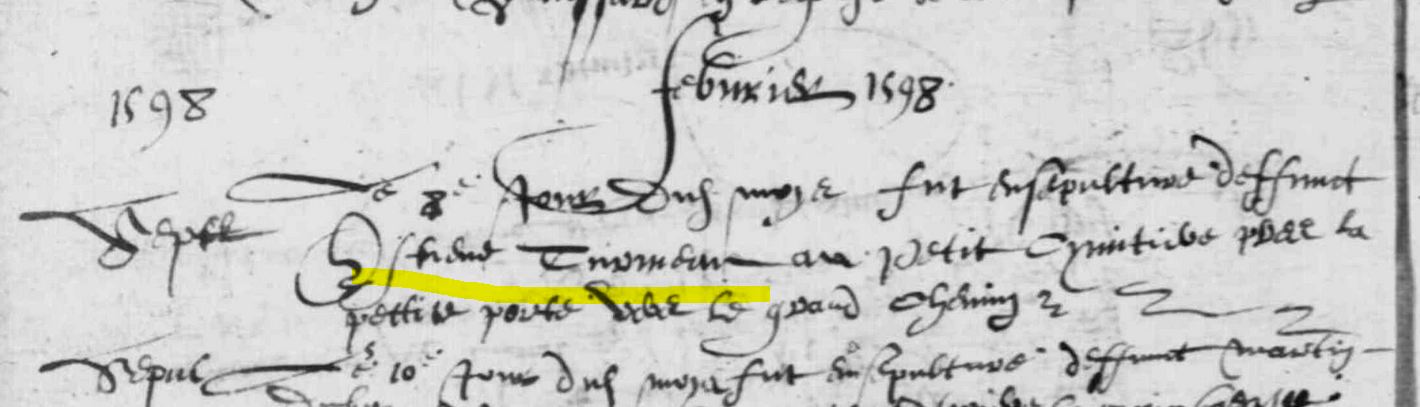 1598
febvrier 1598
Sepul Le 8e jour dud moys fut ensepulturé deffunct
Estiene Turmeau au petit Cymitiere pres la
pettite porte vers le grand chemin
Sepul Le 10e jour dud moys fut ensepulturé deffunct martin